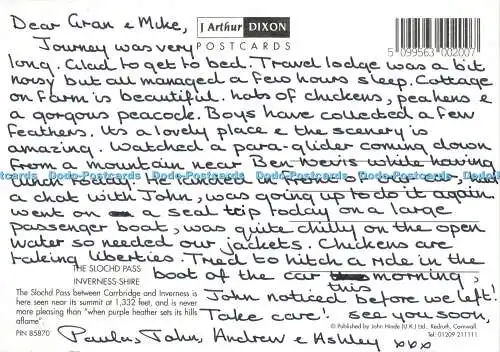 Dear Gran & Mike,
J Arthur DIXON
POSTCARDS
5 099563 002007
Journey was very
long. Glad to get to bed. Travel lodge was a bit
noisy but all managed a few hours sleep. Cottage
on farm is beautiful. hots of chickens, peahens &
a gorgous peacock. Boys have collected a few
feathers. Its a lovely place & the scenery is
amazing. Watched a para-glider coming down
from a mountain near Ben Nevis while having
lunch today. He landed in front of the car, had
a chat with John, was going up to do it again
went on a seal trip today on a large
passenger boat, was quite chilly on the open
water so needed our jackets. Chickens are
taking liberties. Tried to hitch a ride in the
boot of the car this morning,
John noticed before we left!
Take care! see you soon,
Paula, John, Andrew & Ashley xxx
THE SLOCHD PASS
INVERNESS-SHIRE
The Slochd Pass between Carrbridge and Inverness is
here seen near its summit at 1,332 feet, and is never
more pleasing than "when purple heather sets its hills
aflame".
PIN 85870
© Published by John Hinde (U.K.) Ltd., Redruth, Cornwall.
Tel: 01209 211111
Dodo-Postcards Dodo-Postcards Dodo-Postcards Dodo-Postcards Dodo-Postcards